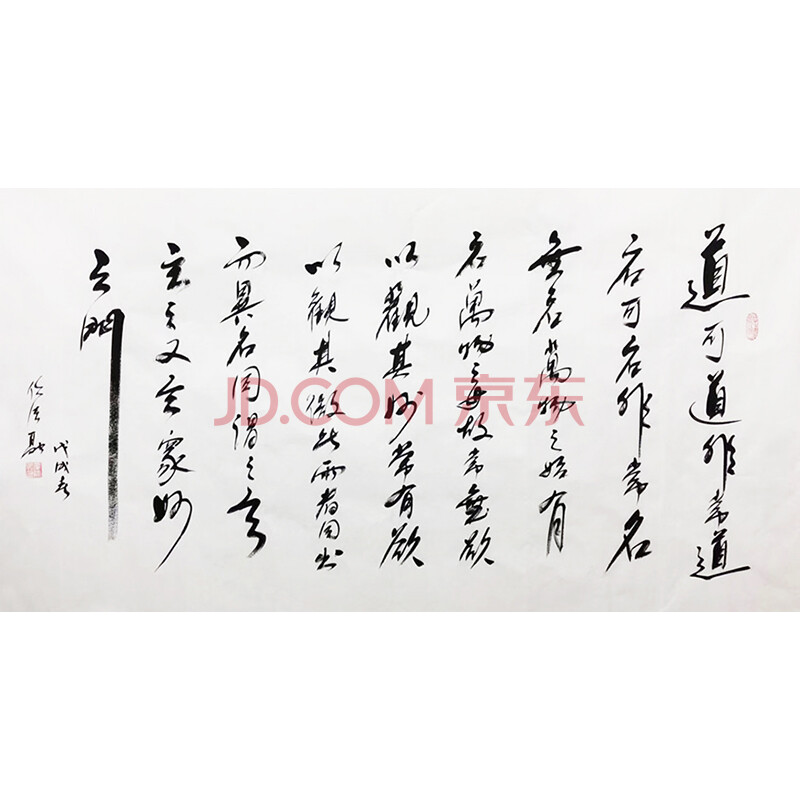 道可道非常道
名可名非常名
無名萬物之始有
名萬物之母故常無欲
以觀其妙常有欲
以觀其徼此兩者同出
而異名同謂之玄
玄之又玄眾妙
之門
戊戌春
JD.COM 京东